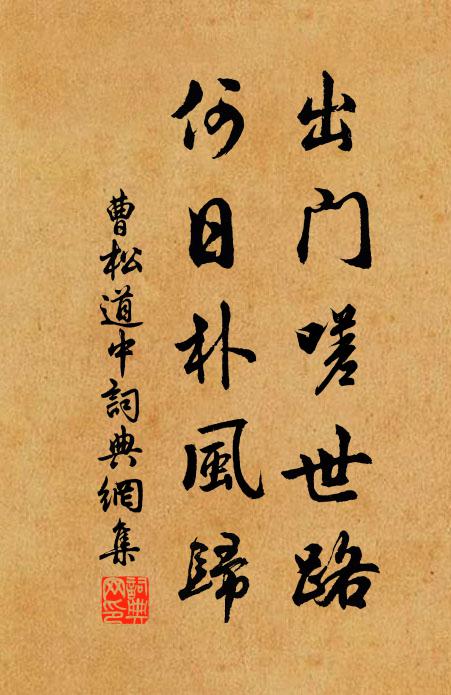 出門嗟世路
何日朴風歸
曹松道中詞典網集
詞典網印